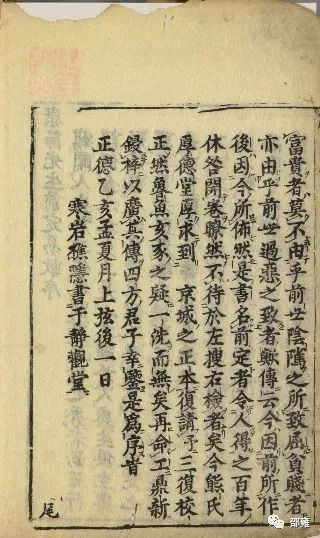 富貴者莫不由乎前世陰隲之所致處貧賤者
亦由乎前世過惡之致者歟傳云今因前所作
後因今所佈然是書名前定者令人得之百年
休咎開卷瞭然不待於左搜右檢者矣今熊氏
厚德堂厚求到 京城之正本復請予三復校
正然魯魚亥豕之疑一洗而無矣再命工鼎新
鋟梓以廣其傳四方君子幸鑒是為序旹
正德乙亥孟夏月上弦後一日
寒岩樵隱書于靜觀堂
尾
邵雍